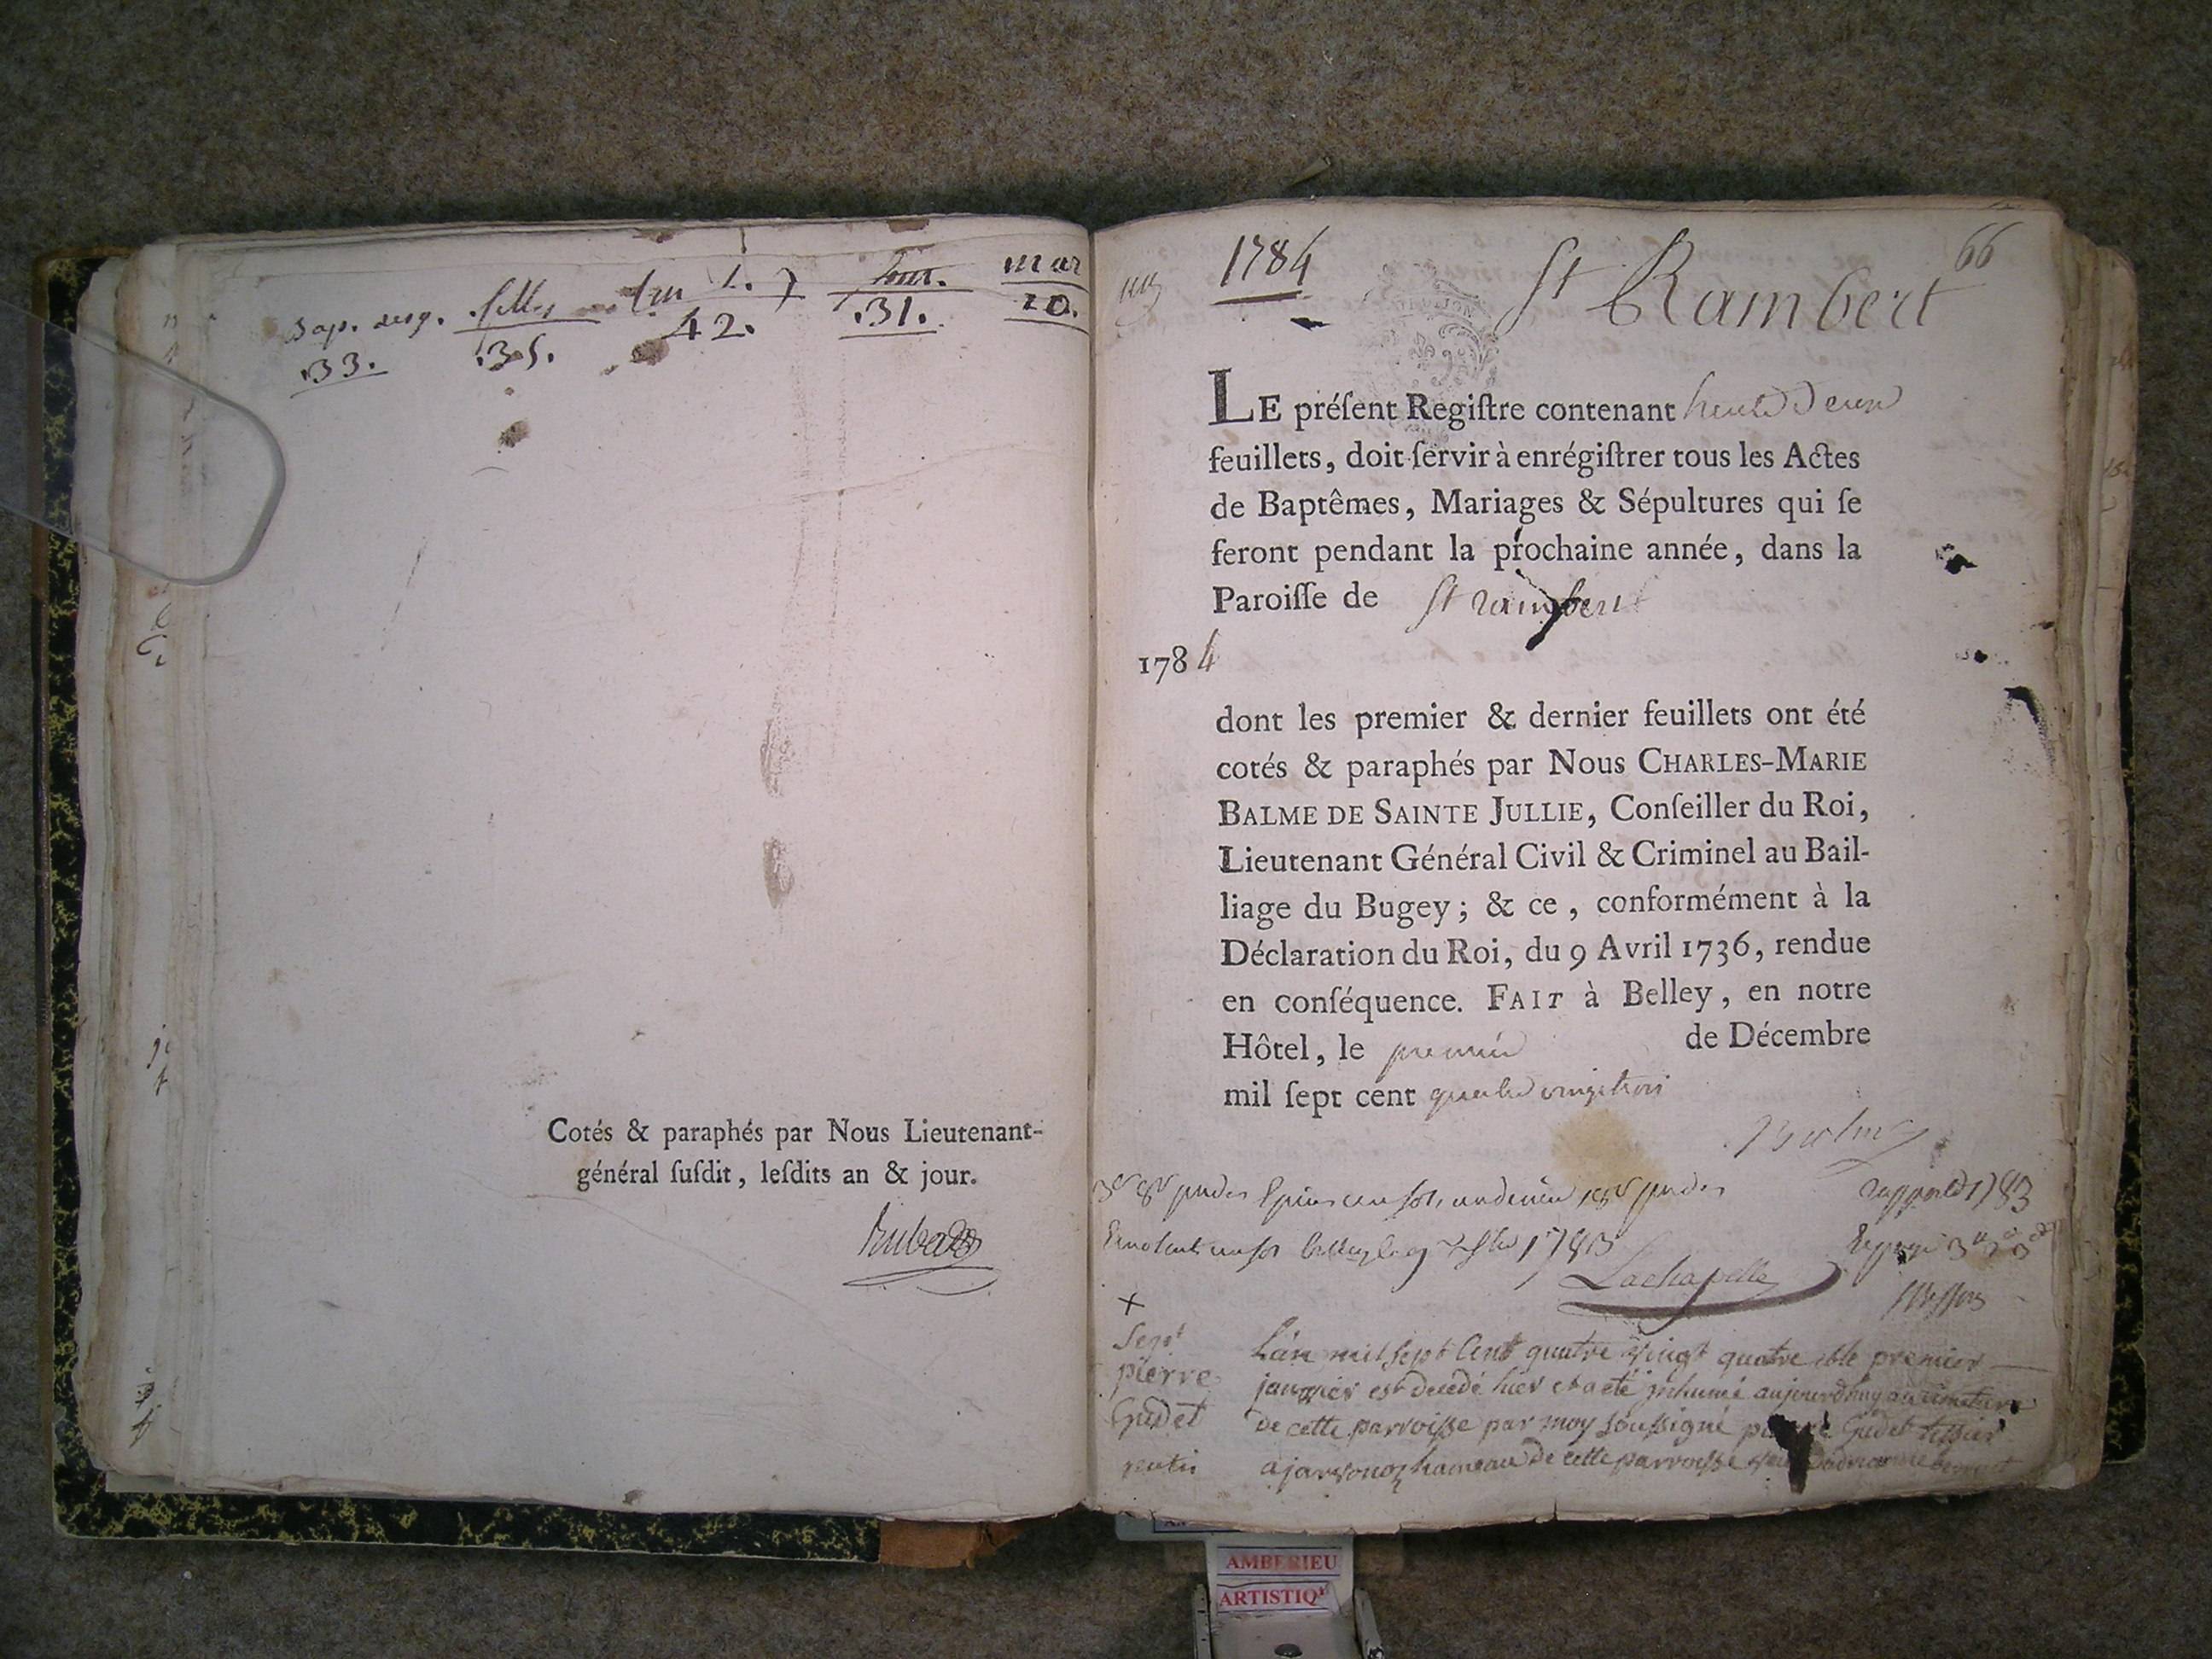 bap. desg. filles
33. 35. 42. 31. 10.
mar
Cotés & paraphés par Nous Lieutenant-
général suſdit, leſdits an & jour.
1784 St Rambert 66
LE préſent Regiſtre contenant
feuillets, doit ſervir à enrégiſtrer tous les Actes
de Baptêmes, Mariages & Sépultures qui ſe
feront pendant la prochaine année, dans la
Paroiſſe de St rambert
1784
dont les premier & dernier feuillets ont été
cotés & paraphés par Nous CHARLES-MARIE
BALME DE SAINTE JULLIE, Conſeiller du Roi,
Lieutenant Général Civil & Criminel au Bail-
liage du Bugey; & ce, conformément à la
Déclaration du Roi, du 9 Avril 1736, rendue
en conſéquence. FAIT à Belley, en notre
Hôtel, le premier de Décembre
mil ſept cent quatre vingt trois
Balme
1783
1783
Lachapelle
Sept
pierre
Gudet
L'an mil sept Cent quatre vingt quatre et le premier
janvier est decedé hier et a eté inhumé aujourdhuy au cimetiere
de cette parroisse par moy soussigné pierre Gudet tissier
a javornoz hameau de cette parroisse
AMBERIEU
ARTISTIQ